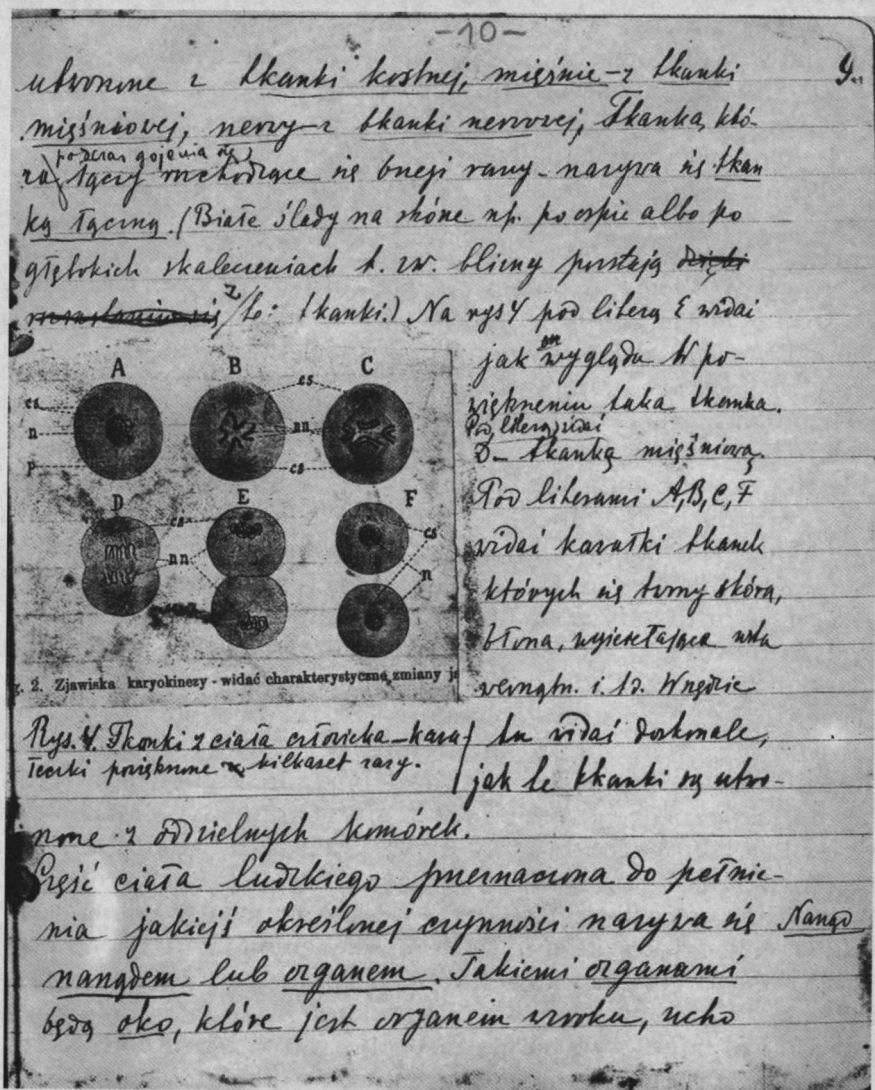 -10-
9.
utworzone z tkanki kostnej, mięśnie - z tkanki
mięśniowej, nerwy - z tkanki nerwowej, Tkanka, któ-
podczas gojenia się
ra łączy rozchodzące się brzegi rany - nazywa się tkan
ką łączną. (Białe ślady na skórze np. po ospie albo po
głębokich skaleczeniach t. zw. blizny powstają dzięki
z
tej tkanki.) Na rys 4 pod literą E widać
jak on wygląda w po-
większeniu taka tkanka.
Pod literą widać
D - tkankę mięśniową.
Pod literami A, B, C, F
widać kawałki tkanek
których się tworzy skóra,
błona, wyścełająca usta
wewnątrz. i. t.d. Wszędzie
A B C
cs
n
p
cs
nn
cs
D E F
cs
nn
cs
n
g. 2. Zjawiska karyokinezy - widać charakterystyczne zmiany j
Rys. 4. Tkanki z ciała człowieka - kawa
łeczki powiększone kilkaset razy.
tu widać doskonale,
jak te tkanki są utwo-
rzone z oddzielnych komórek.
Część ciała ludzkiego przeznaczona do pełnie-
nia jakiejś określonej czynności nazywa się Narząd
narządem lub organem. Takiemi organami
będą oko, które jest organem wzroku, ucho